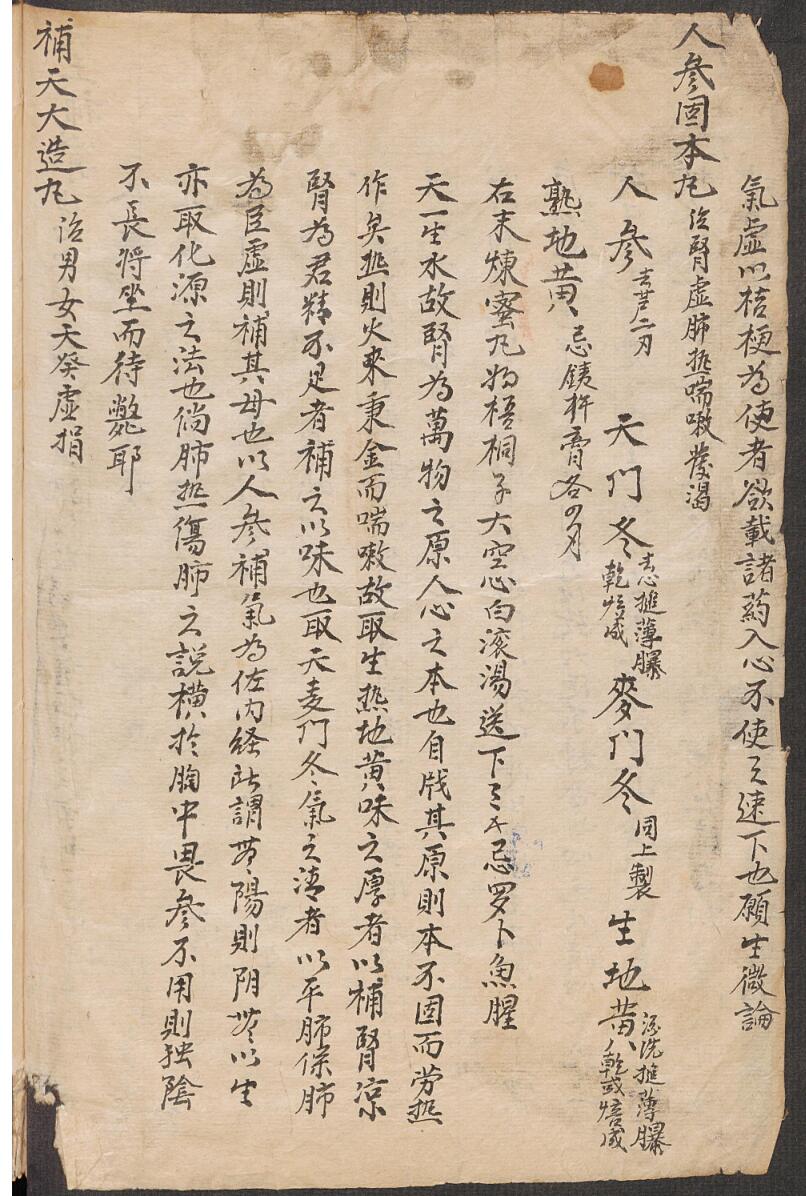 氣虛以桔梗為使者欲載諸药入心不使之速下也願生微論
人參固本丸 治腎虛肺热喘嗽發渴
人參 去芦二刃 天門冬 去心搥薄曝乾焙咸 麥門冬 同上製 生地黄 酒洗搥薄曝乾或焙咸
熟地黄 忌鉄杵膏各四刃
右末煉蜜丸如梧桐子大空心白滚湯送下三子忌罗卜魚腥
天一生水故腎為萬物之原人心之本也自戕其原則本不固而劳热
作矣热則火來乘金而喘嗽故取生熟地黄味之厚者以補腎凉
腎為君精不足者補之以味也取天麦門冬氣之清者以平肺保肺
為臣虛則補其母也以人參補氣為佐内経所謂無陽則阴無以生
亦取化源之法也倘肺热傷肺之説横於胸中畏參不用則独陰
不長將坐而待斃耶
補天大造丸 治男女天癸虛損